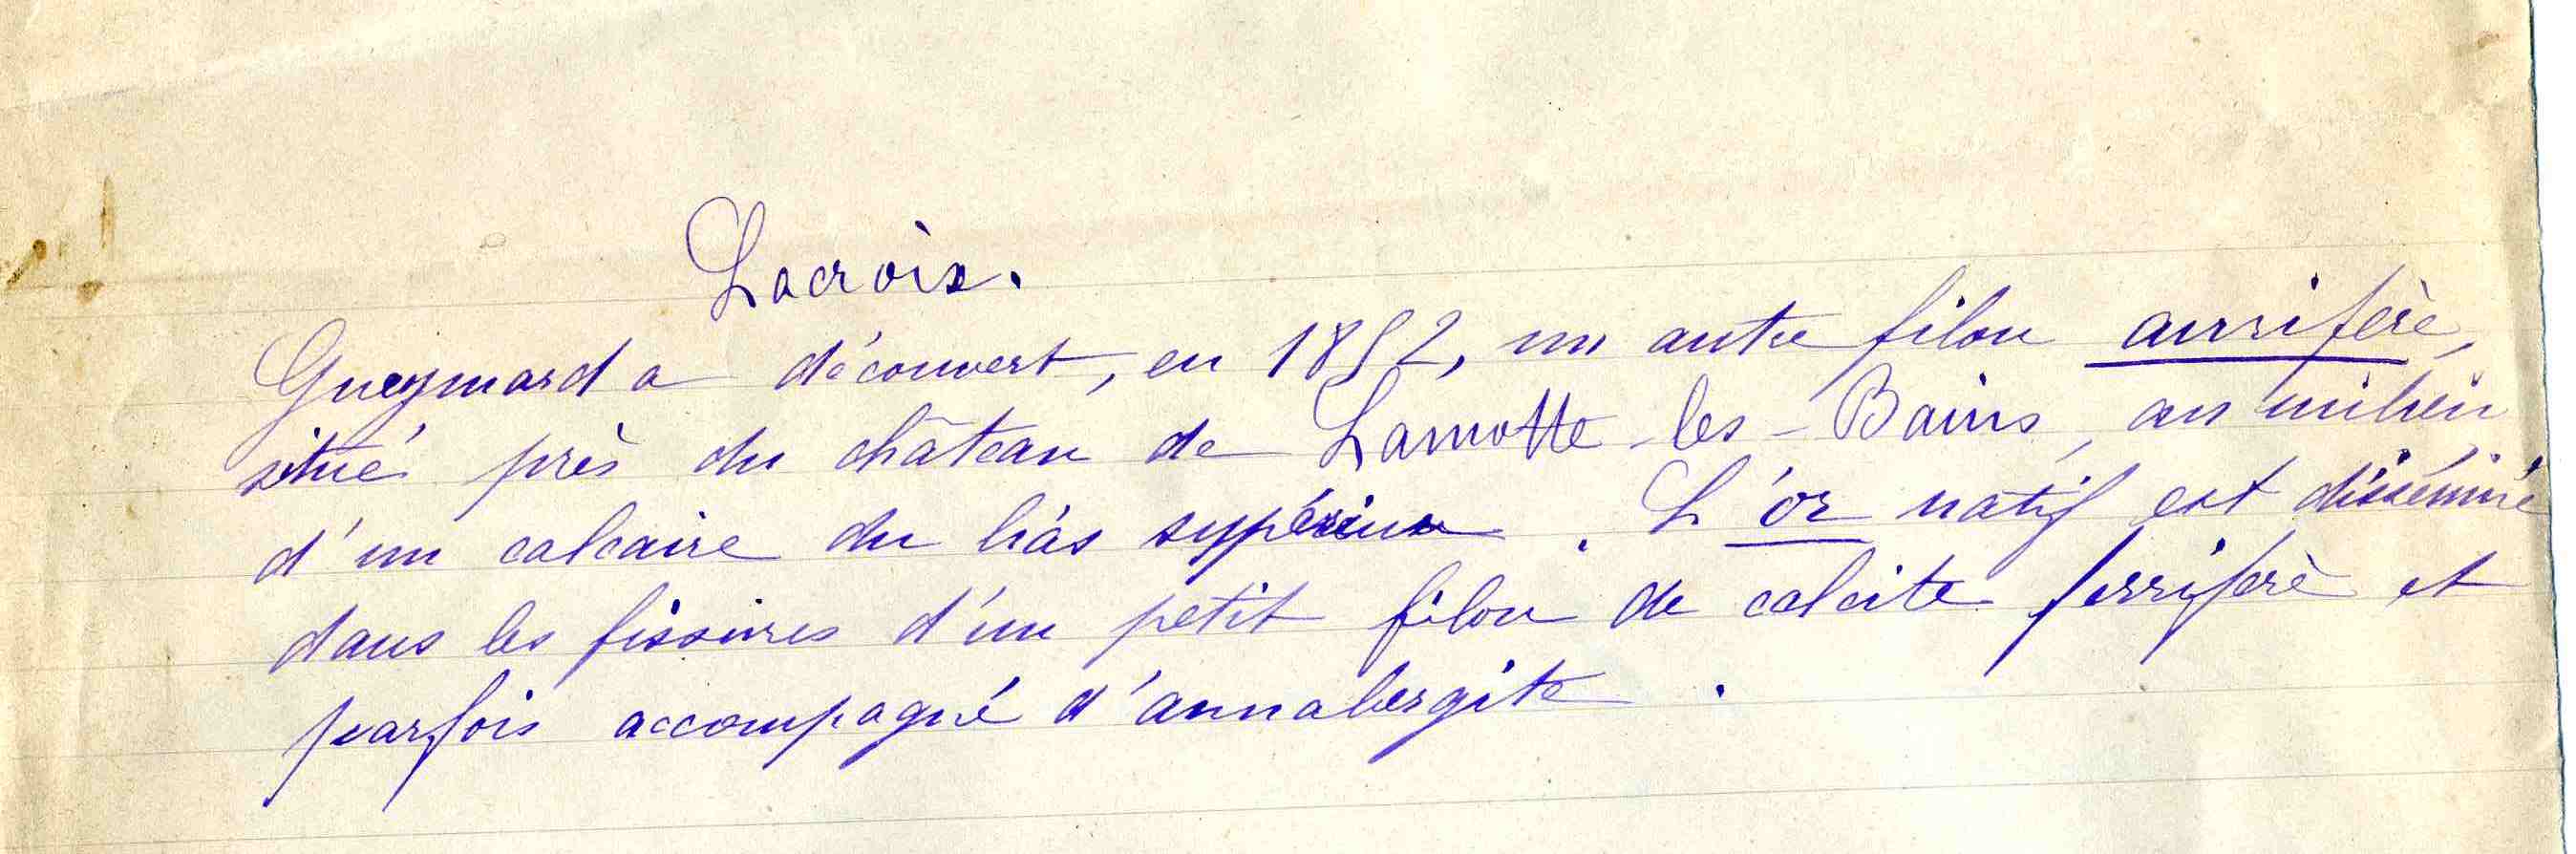 Lacroix.
Gueymard a découvert, en 1852, un autre filon aurifère,
situé près du château de Lamotte-les-Bains, au milieu
d'un calcaire du lias supérieur. L'or natif est disséminé
dans les fissures d'un petit filon de calcite ferrifère et
parfois accompagné d'annabergite.